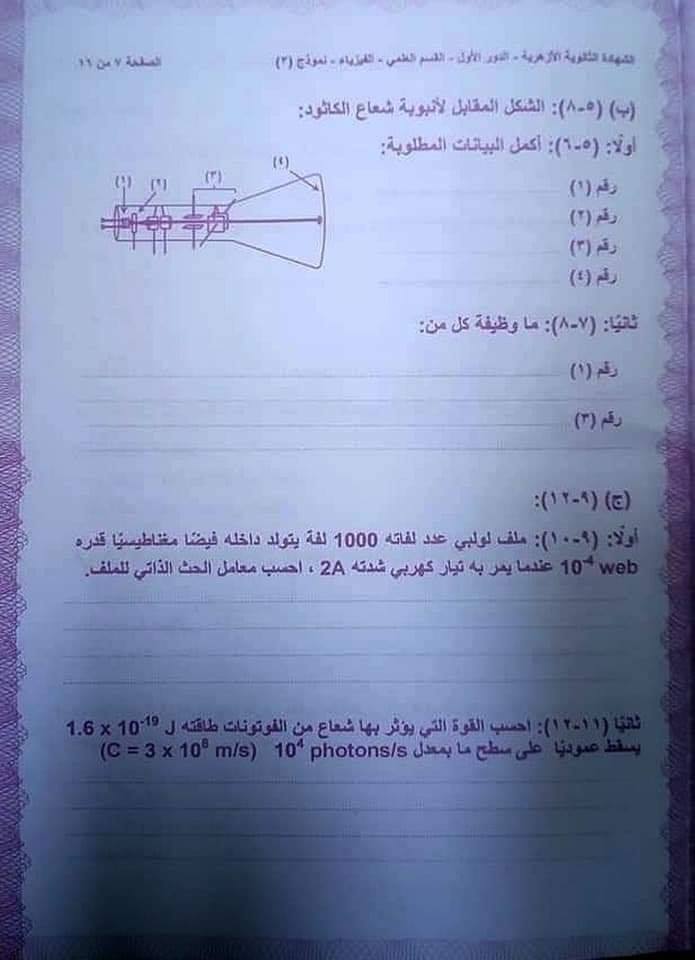 الشهادة الثانوية الأزهرية - الدور الأول - القسم العلمي - الفيزياء - نموذج (٣) الصفحة ٧ من ١٦
(ب) (٥-٨): الشكل المقابل لأنبوبة شعاع الكاثود:
أولًا: (٥-٦): أكمل البيانات المطلوبة:
(١) (٢) (٣) (٤)
رقم (١)
رقم (٢)
رقم (٣)
رقم (٤)
ثانيًا: (٧-٨): ما وظيفة كل من:
رقم (١)
رقم (٣)
(ج) (٩-١٢):
أولًا: (٩-١٠): ملف لولبي عدد لفاته 1000 لفة يتولد داخله فيضًا مغناطيسيًا قدره
10⁻⁴ web عندما يمر به تيار كهربي شدته 2A ، احسب معامل الحث الذاتي للملف.
ثانيًا (١١-١٢): احسب القوة التي يؤثر بها شعاع من الفوتونات طاقته 1.6 x 10⁻¹⁹ J
يسقط عموديًا على سطح ما بمعدل 10⁴ photons/s (C = 3 x 10⁸ m/s)